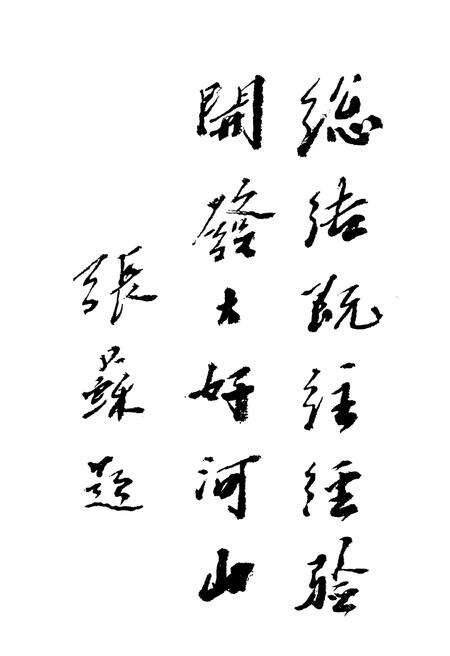 總結既往經驗
開發大好河山
張蘇題